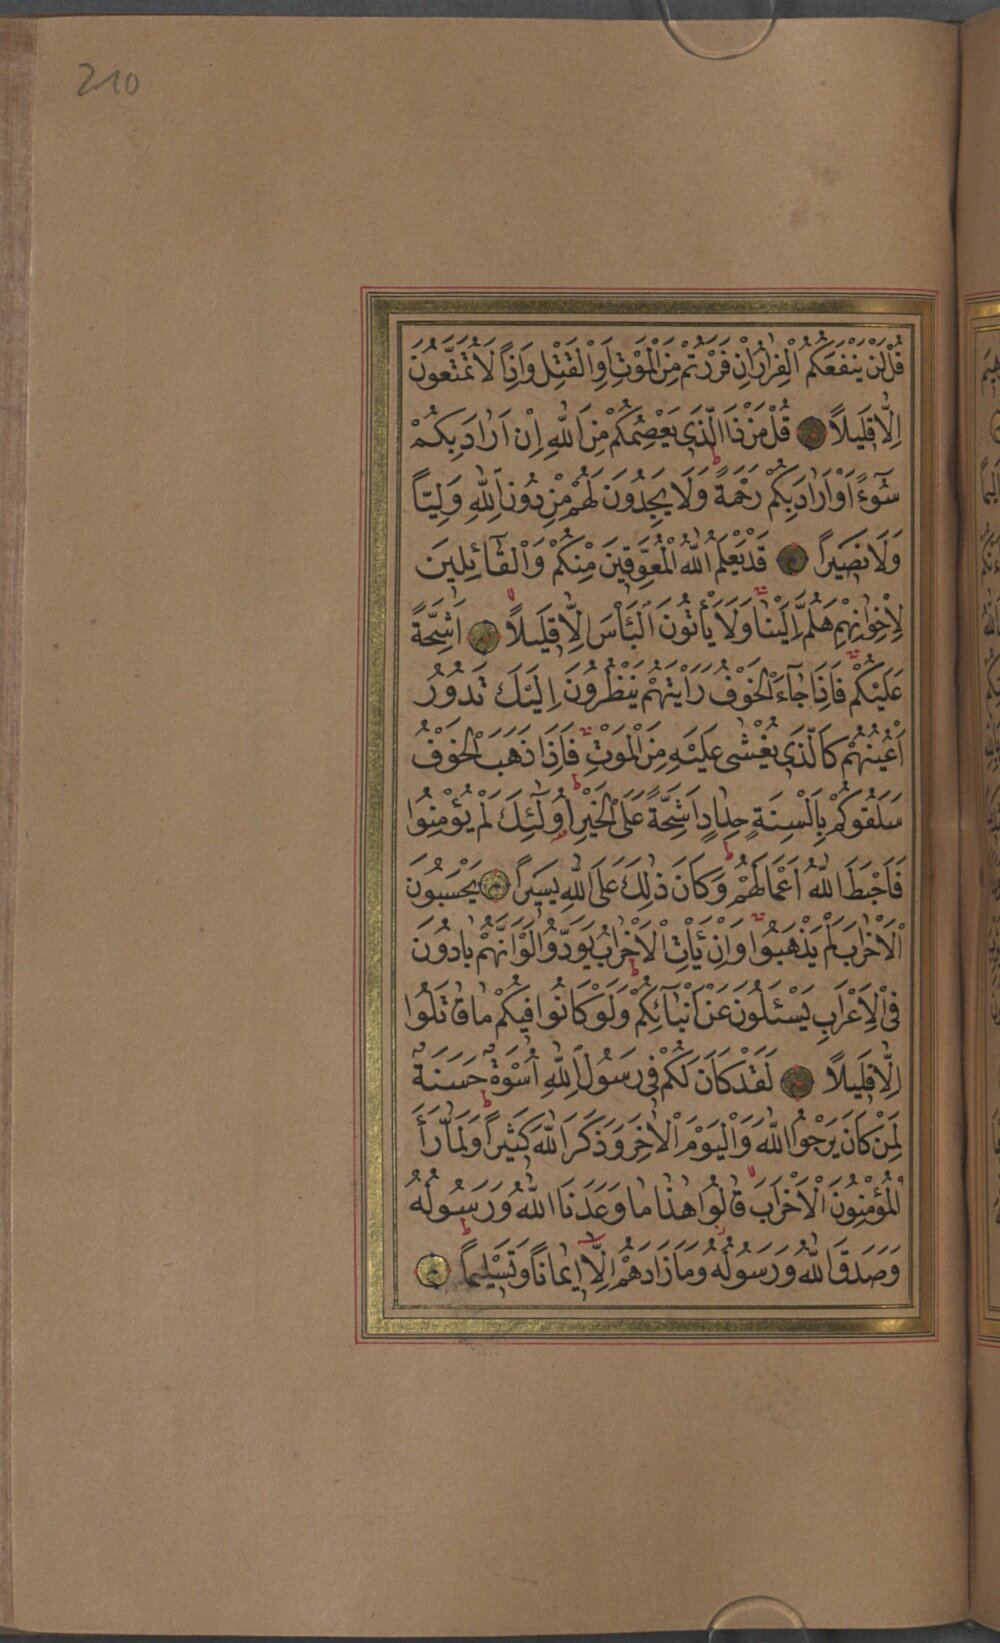 210
قُلْ لَنْ يَنْفَعَكُمُ الْفِرَارُ اِنْ فَرَرْتُمْ مِنَ الْمَوْتِ اَوِ الْقَتْلِ وَاِذًا لَا تُمَتَّعُونَ
اِلَّا قَلِيلًا قُلْ مَنْ ذَا الَّذِي يَعْصِمُكُمْ مِنَ اللّٰهِ اِنْ اَرَادَ بِكُمْ
سُٓوءًا اَوْ اَرَادَ بِكُمْ رَحْمَةً وَلَا يَجِدُونَ لَهُمْ مِنْ دُونِ اللّٰهِ وَلِيًّا
وَلَا نَصِيرًا قَدْ يَعْلَمُ اللّٰهُ الْمُعَوِّقِينَ مِنْكُمْ وَالْقَٓائِلِينَ
لِاِخْوَانِهِمْ هَلُمَّ اِلَيْنَا وَلَا يَأْتُونَ الْبَأْسَ اِلَّا قَلِيلًا اَشِحَّةً
عَلَيْكُمْ فَاِذَا جَٓاءَ الْخَوْفُ رَاَيْتَهُمْ يَنْظُرُونَ اِلَيْكَ تَدُورُ
اَعْيُنُهُمْ كَالَّذِي يُغْشٰى عَلَيْهِ مِنَ الْمَوْتِ فَاِذَا ذَهَبَ الْخَوْفُ
سَلَقُوكُمْ بِاَلْسِنَةٍ حِدَادٍ اَشِحَّةً عَلَى الْخَيْرِ اُولٰٓئِكَ لَمْ يُؤْمِنُوا
فَاَحْبَطَ اللّٰهُ اَعْمَالَهُمْ وَكَانَ ذٰلِكَ عَلَى اللّٰهِ يَسِيرًا يَحْسَبُونَ
الْاَحْزَابَ لَمْ يَذْهَبُوا وَاِنْ يَأْتِ الْاَحْزَابُ يَوَدُّوا لَوْ اَنَّهُمْ بَادُونَ
فِي الْاَعْرَابِ يَسْئَلُونَ عَنْ اَنْبَٓائِكُمْ وَلَوْ كَانُوا فِيكُمْ مَا قَاتَلُوا
اِلَّا قَلِيلًا لَقَدْ كَانَ لَكُمْ فِي رَسُولِ اللّٰهِ اُسْوَةٌ حَسَنَةٌ
لِمَنْ كَانَ يَرْجُوا اللّٰهَ وَالْيَوْمَ الْاٰخِرَ وَذَكَرَ اللّٰهَ كَثِيرًا وَلَمَّا رَأَ
الْمُؤْمِنُونَ الْاَحْزَابَ قَالُوا هٰذَا مَا وَعَدَنَا اللّٰهُ وَرَسُولُهُ
وَصَدَقَ اللّٰهُ وَرَسُولُهُ وَمَا زَادَهُمْ اِلَّٓا اِيمَانًا وَتَسْلِيمًا